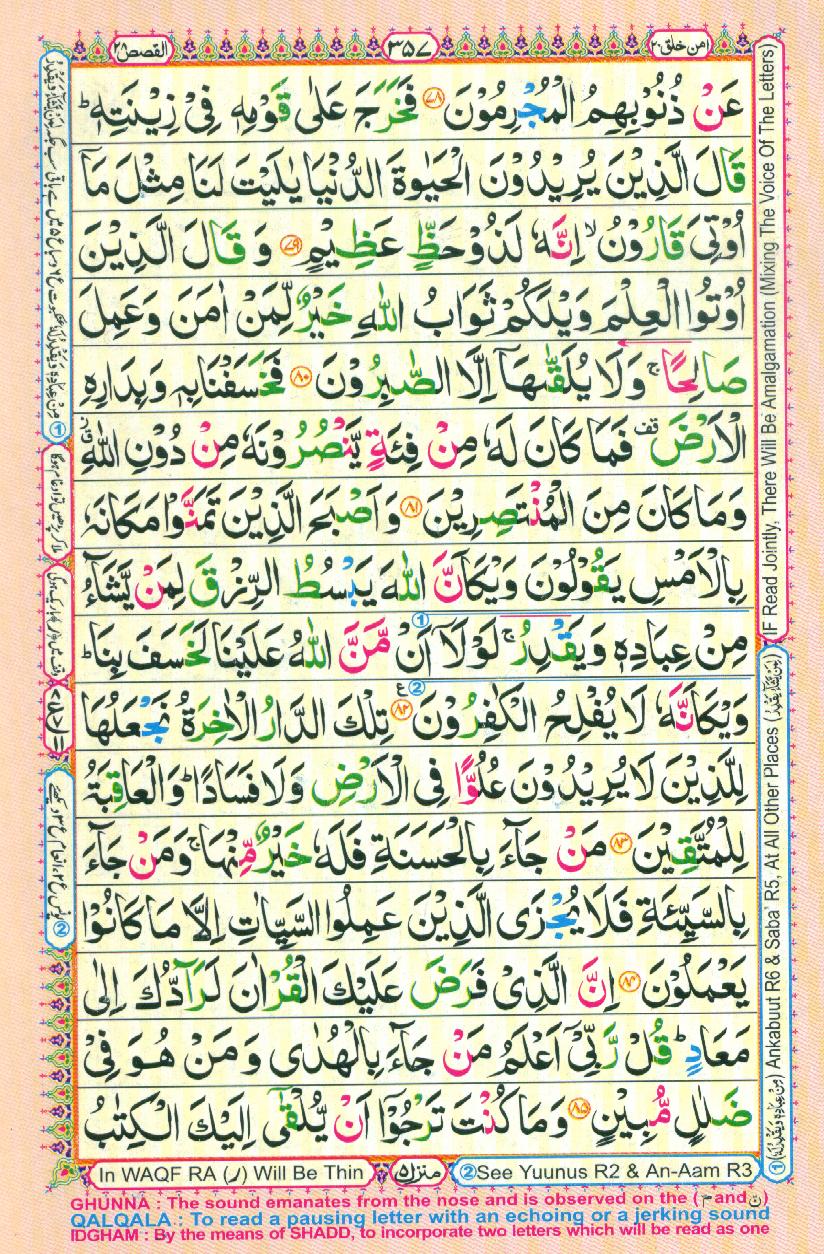 امن خلق ٢٠
٣٥٧
القصص ٢٨
عَنْ ذُنُوْبِهِمُ الْمُجْرِمُوْنَ ﴿٧٨﴾ فَخَرَجَ عَلٰى قَوْمِهٖ فِيْ زِيْنَتِهٖ ؕ
قَالَ الَّذِيْنَ يُرِيْدُوْنَ الْحَيٰوةَ الدُّنْيَا يٰلَيْتَ لَنَا مِثْلَ مَاۤ
اُوْتِيَ قَارُوْنُ ۙ اِنَّهٗ لَذُوْ حَظٍّ عَظِيْمٍ ﴿٧٩﴾ وَقَالَ الَّذِيْنَ
اُوْتُوا الْعِلْمَ وَيْلَكُمْ ثَوَابُ اللّٰهِ خَيْرٌ لِّمَنْ اٰمَنَ وَعَمِلَ
صَالِحًا ۚ وَلَا يُلَقّٰىهَاۤ اِلَّا الصّٰبِرُوْنَ ﴿٨٠﴾ فَخَسَفْنَا بِهٖ وَبِدَارِهِ
الْاَرْضَ قف فَمَا كَانَ لَهٗ مِنْ فِئَةٍ يَّنْصُرُوْنَهٗ مِنْ دُوْنِ اللّٰهِ
وَمَا كَانَ مِنَ الْمُنْتَصِرِيْنَ ﴿٨١﴾ وَاَصْبَحَ الَّذِيْنَ تَمَنَّوْا مَكَانَهٗ
بِالْاَمْسِ يَقُوْلُوْنَ وَيْكَاَنَّ اللّٰهَ يَبْسُطُ الرِّزْقَ لِمَنْ يَّشَآءُ
مِنْ عِبَادِهٖ وَيَقْدِرُ ۚ لَوْلَاۤ اَنْ مَّنَّ اللّٰهُ عَلَيْنَا لَخَسَفَ بِنَا ؕ
وَيْكَاَنَّهٗ لَا يُفْلِحُ الْكٰفِرُوْنَ ﴿٨٢﴾ تِلْكَ الدَّارُ الْاٰخِرَةُ نَجْعَلُهَا
لِلَّذِيْنَ لَا يُرِيْدُوْنَ عُلُوًّا فِي الْاَرْضِ وَلَا فَسَادًا ؕ وَالْعَاقِبَةُ
لِلْمُتَّقِيْنَ ﴿٨٣﴾ مَنْ جَآءَ بِالْحَسَنَةِ فَلَهٗ خَيْرٌ مِّنْهَا ۚ وَمَنْ جَآءَ
بِالسَّيِّئَةِ فَلَا يُجْزَى الَّذِيْنَ عَمِلُوا السَّيِّاٰتِ اِلَّا مَا كَانُوْا
يَعْمَلُوْنَ ﴿٨٤﴾ اِنَّ الَّذِيْ فَرَضَ عَلَيْكَ الْقُرْاٰنَ لَرَآدُّكَ اِلٰى
مَعَادٍ ؕ قُلْ رَّبِّيْۤ اَعْلَمُ مَنْ جَآءَ بِالْهُدٰى وَمَنْ هُوَ فِيْ
ضَلٰلٍ مُّبِيْنٍ ﴿٨٥﴾ وَمَا كُنْتَ تَرْجُوْۤا اَنْ يُّلْقٰۤى اِلَيْكَ الْكِتٰبُ
IF Read Jointly, There Will Be Amalgamation (Mixing The Voice Of The Letters)
① (مِنْ عِبَادِهٖ وَيَقْدِرُ لَهٗ) Ankabuut R6 & Saba' R5, At All Other Places (لِمَنْ يَّشَآءُ وَيَقْدِرُ)
In WAQF RA (ر) Will Be Thin
منزل ٥
②See Yuunus R2 & An-Aam R3
GHUNNA : The sound emanates from the nose and is observed on the (م and ن)
QALQALA : To read a pausing letter with an echoing or a jerking sound
IDGHAM : By the means of SHADD, to incorporate two letters which will be read as one